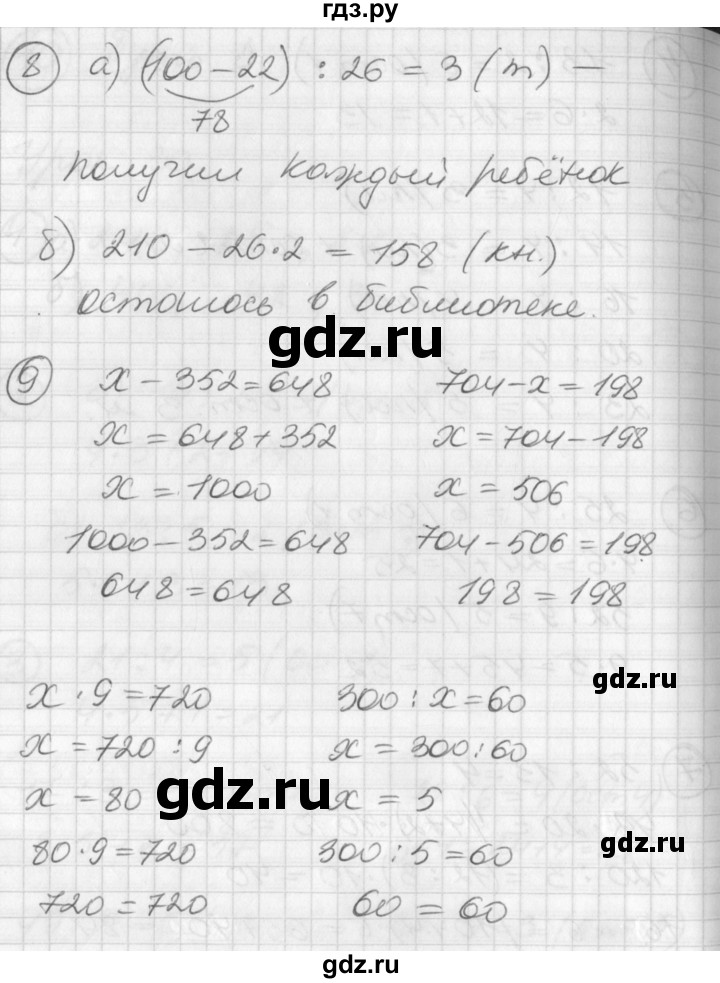 гдз.ру
8 а) (100-22) : 26 = 3 (т) —
78
получил каждый ребёнок
б) 210 - 26·2 = 158 (кн.)
осталось в библиотеке.
gdz.ru
9 x - 352 = 648 704 - x = 198
x = 648 + 352 x = 704 - 198
x = 1000 x = 506
1000 - 352 = 648 704 - 506 = 198
648 = 648 198 = 198
gdz.ru
x · 9 = 720 300 : x = 60
x = 720 : 9 x = 300 : 60
gdz.ru
x = 80 x = 5
gdz.ru
80 · 9 = 720 300 : 5 = 60
720 = 720 60 = 60
gdz.ru